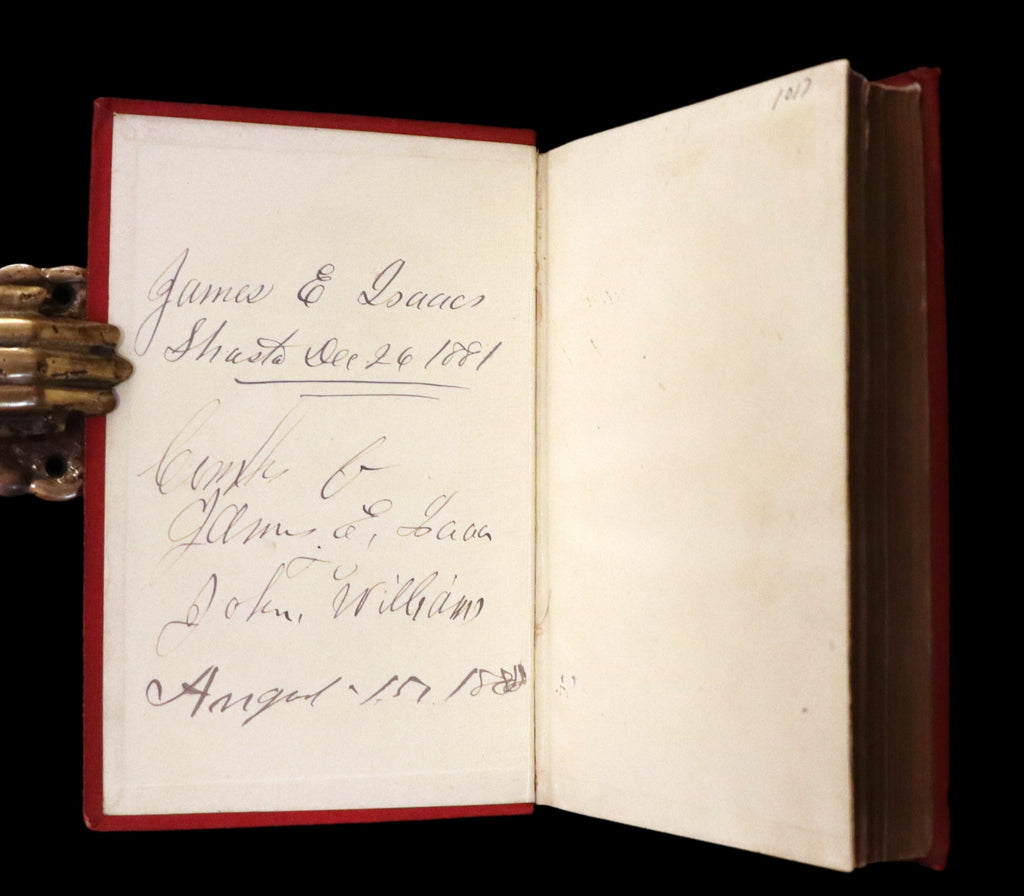 James E Isaacs
Shasta Dec 26 1881
James. E, Isaacs
John. Williams
August - 15, 188
1017